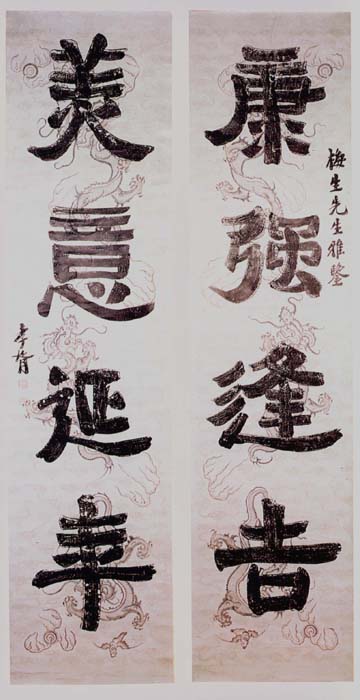 康强逢吉
梅生先生雅鑒
美意延年
李瑞